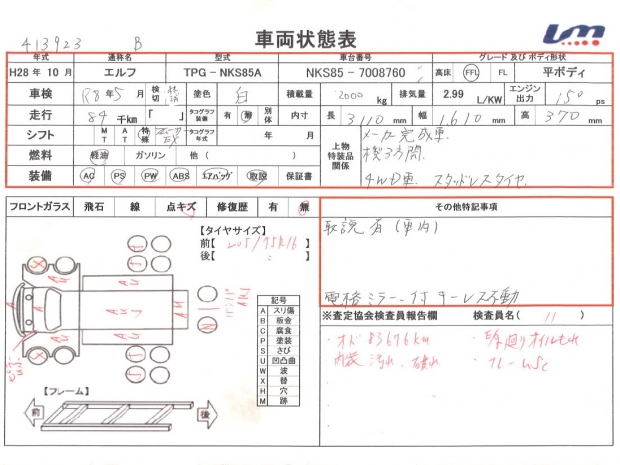 413923 B
車両状態表
年式 通称名 型式 車台番号 グレード 及び ボディ形状
H28 年 10 月 エルフ TPG - NKS85A NKS85 - 7008760 高床 FFL FL 平ボディ
車検 R8年5月 検切 塗色 白 積載量 2000 kg 排気量 2.99 L/KW エンジン出力 150 ps
走行 84 千km 「 」 タコグラフ装備 有 無 別体 内寸 長 3110 mm 幅 1,610 mm 高 370 mm
シフト MT AT 特殊 タコグラフ年式 年 月 上物特装品関係 メーカー完成車.
燃料 軽油 ガソリン 他 ( ) 積3方開.
装備 AC PS PW ABS エアバッグ 取説 保証書 4WD車. スタッドレスタイヤ.
フロントガラス 飛石 線 点キズ 修復歴 有 無 その他特記事項
【タイヤサイズ】 取説有 (車内)
前【205/75R16】
後【 : 】
電格ミラー、付 キーレス不動
記号
A スリ傷
B 板金
C 腐食
P 塗装
S さび
U 凹凸曲
W 波
X 替
H 穴
M 跡
※査定協会検査員報告欄 検査員名 ( 11 )
・オド 83676km
内装 汚れ、破れ
・下廻りオイルもれ
・フレームSC
【フレーム】
前 後